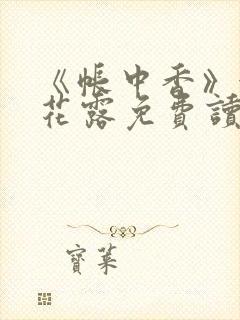 《帳中香》
花露免費讀
寶葉